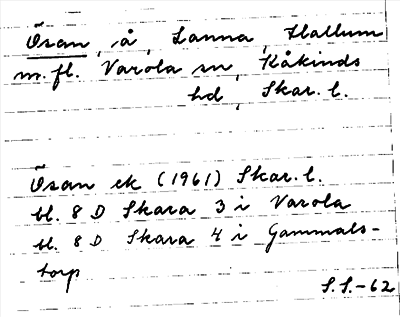 Ösan, å, Lanna, Hallum
m.fl. Varola sn, Kåkinds
hd, Skar. l.
Ösan ek (1961) Skar. l.
bl. 8 D Skara 3 i Varola
bl. 8 D Skara 4 i Gammals-
torp
S.S.-62